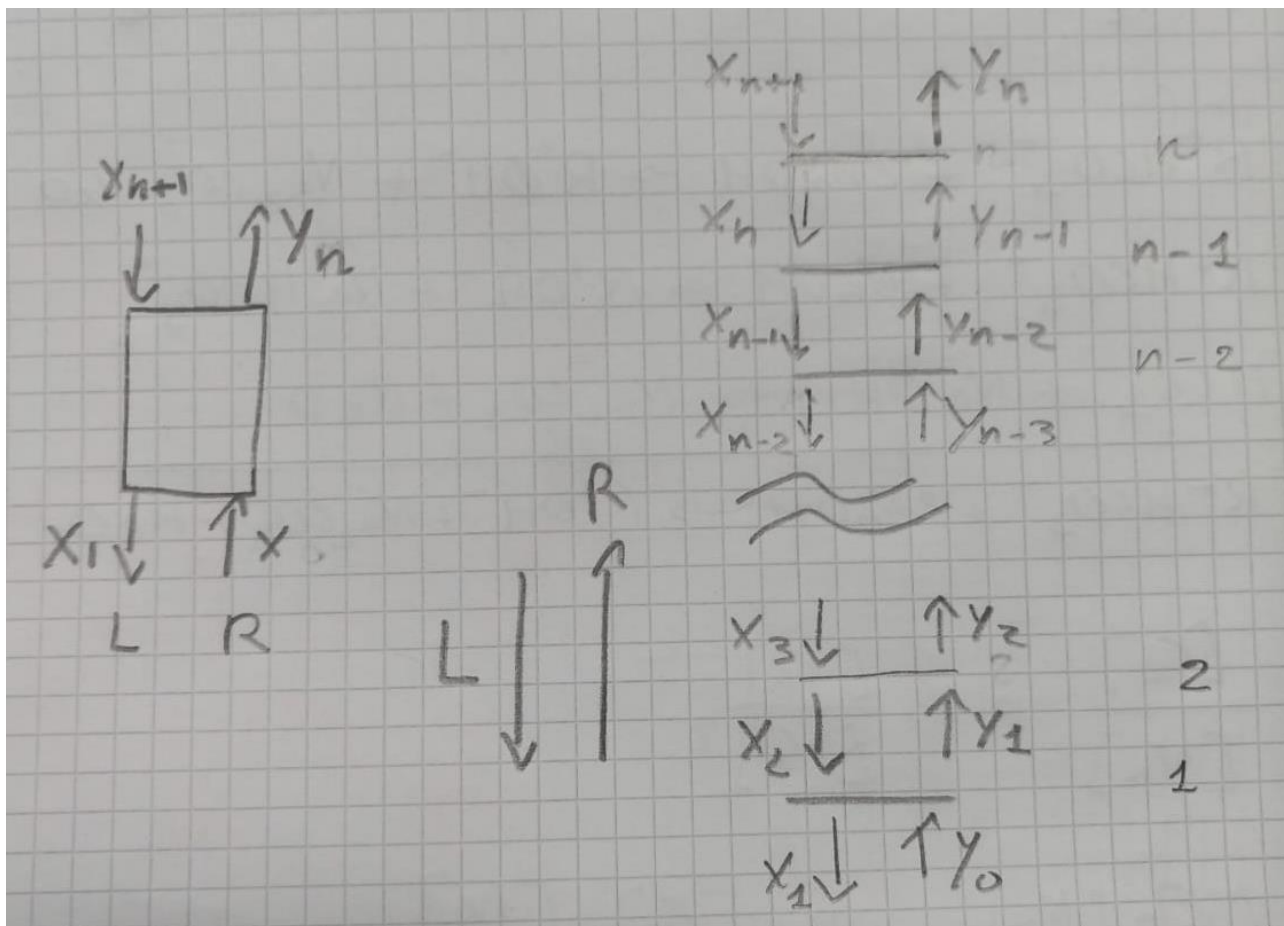 X_{n+1} Y_n
X_1 X
L R
L R
X_{n+1} Y_n
n
X_n Y_{n-1}
n-1
X_{n-1} Y_{n-2}
n-2
X_{n-2} Y_{n-3}
X_3 Y_2
2
X_2 Y_1
1
X_1 Y_0